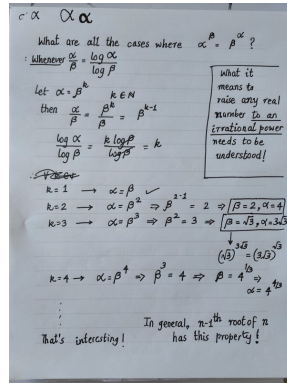 α α α
What are all the cases where α^β = β^α ?
: Whenever α/β = log α / log β
Let α = β^k   k ∈ N
then α/β = β^k/β = β^(k-1)
log α / log β = k log β / log β = k
What it
means to
raise any real
number to an
irrational power
needs to be
understood!
k = 1 → α = β ✓
k = 2 → α = β^2 ⇒ β^(2-1) = 2 ⇒ β = 2, α = 4
k = 3 → α = β^3 ⇒ β^2 = 3 ⇒ β = √3, α = 3√3
(√3)^(3√3) = (3√3)^√3
k = 4 → α = β^4 ⇒ β^3 = 4 ⇒ β = 4^(1/3) ⇒
α = 4^(4/3)
In general, n-1th root of n
has this property!
That's interesting!